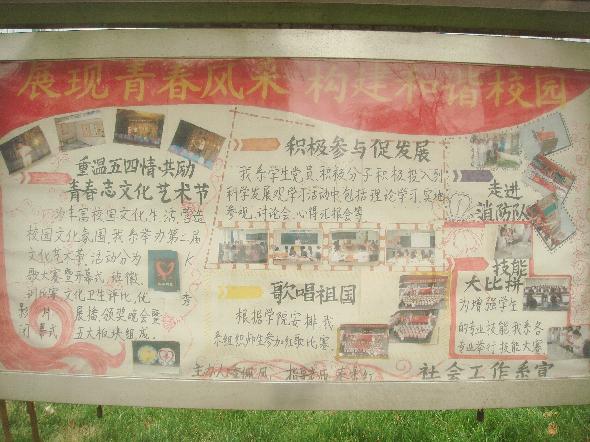 展现青春风采 构建和谐校园
重温五四情·共励
青春志文化艺术节
为丰富校园文化生活,营造
校园文化氛围,我系举办第二届
文化艺术节,活动分为
歌大赛暨开幕式,班徽
文化卫生评比,优
秀影片展播,颁奖晚会暨
闭幕式五大板块组成.
积极参与促发展
我系学生党员积极分子积极投入到
科学发展观学习活动中包括理论学习,实地
参观,讨论会,心得汇报会等
歌唱祖国
根据学院安排我
系组织师生参加红歌比赛
走进
消防队
技能
大比拼
为增强学生
的专业技能我系各
专业举行技能大赛
主办人
指导老师
社会工作系宣